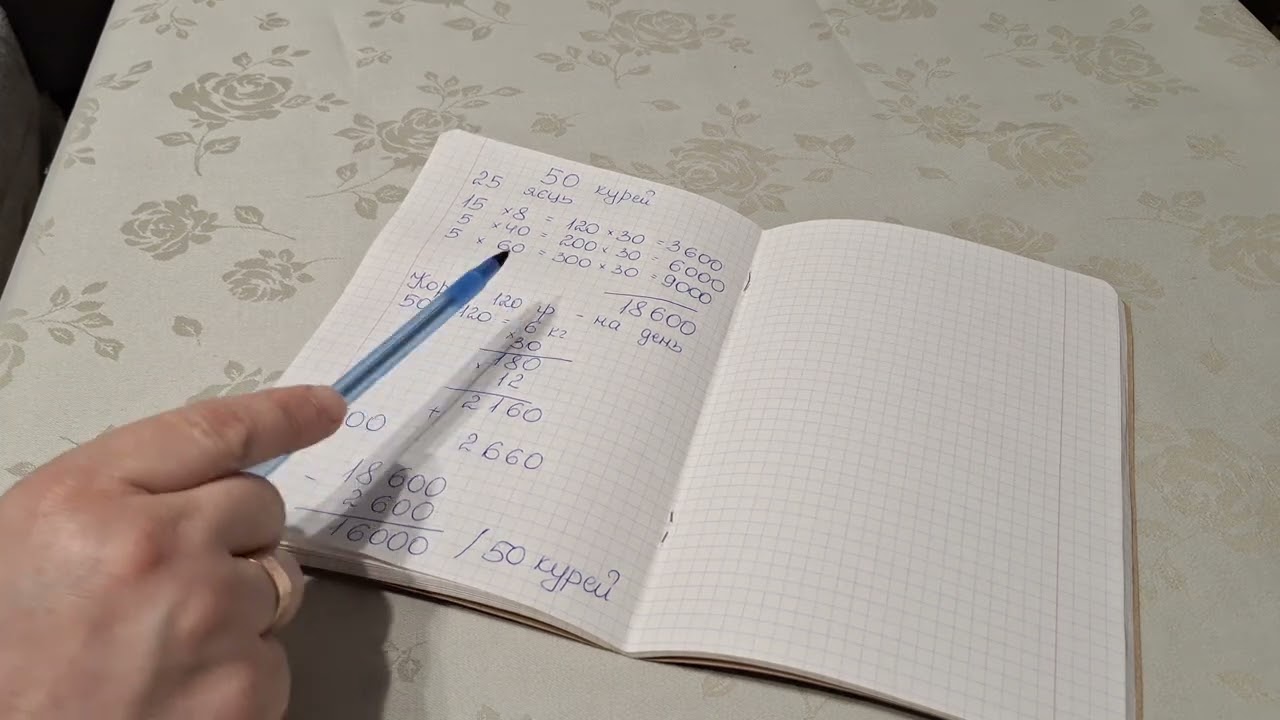 50 курей
25 яєць
15 ×8 = 120 ×30 = 3600
5 ×40 = 200 × 30 = 6000
5 × 60 = 300 × 30 = 9000
18600
120 г - на день
50 120 = 6 кг
×30
180
× 12
+ 2160
2660
- 18600
2600
16000 / 50 курей